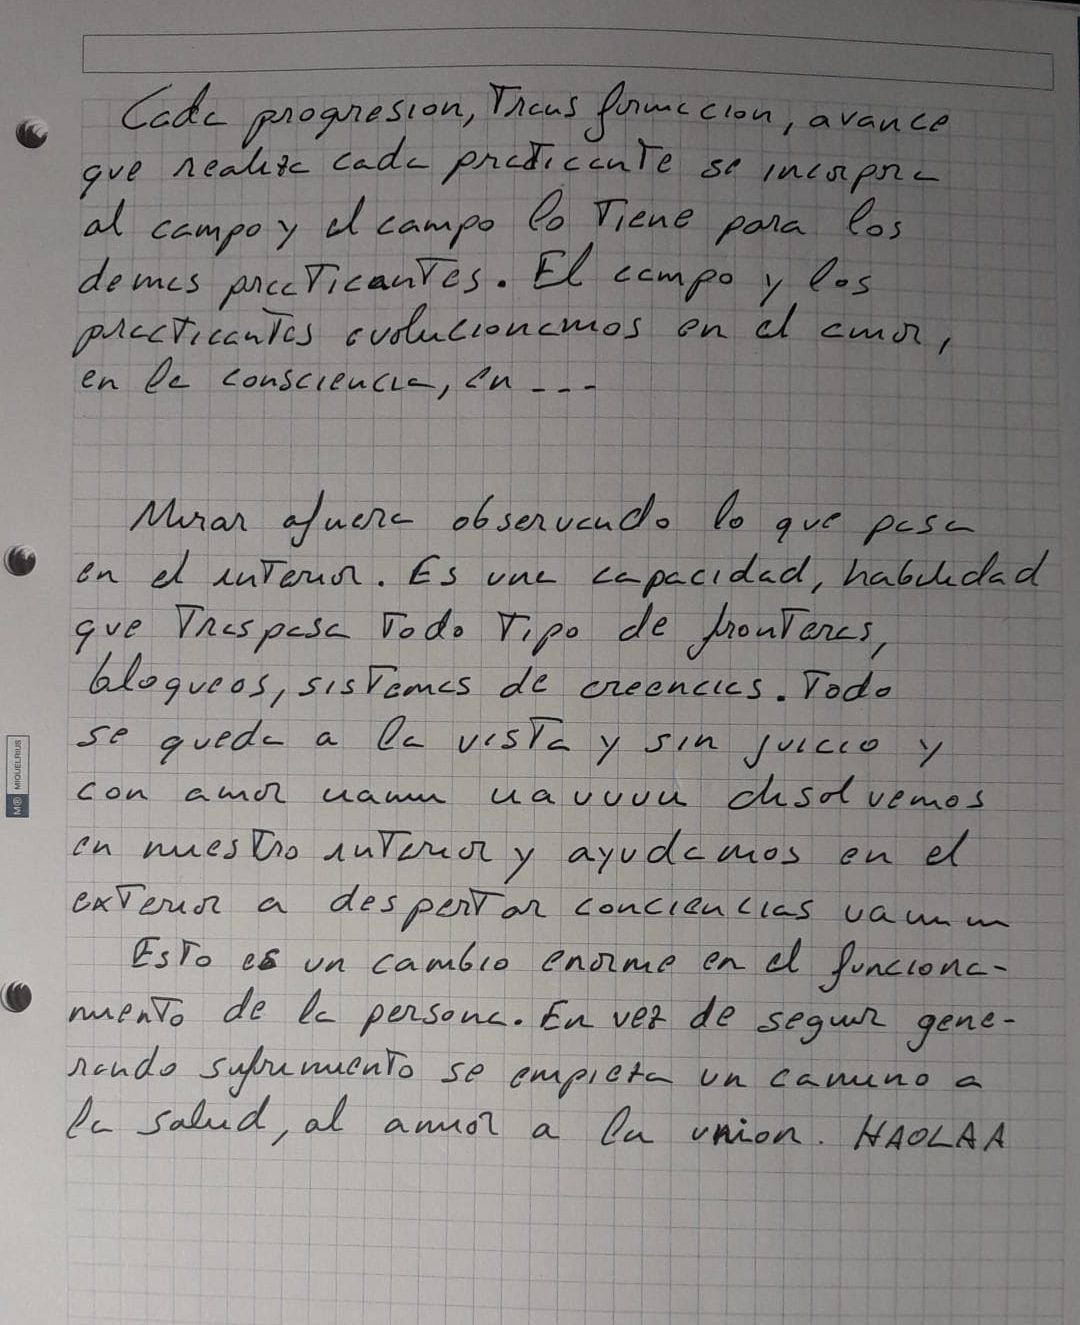 Cada progresion, Transformacion, avance
que realiza cada practicante se incorpora
al campo y el campo lo Tiene para los
demas practicantes. El campo y los
practicantes evolucionamos en el amor,
en la consciencia, en ----
Mirar afuera observando lo que pasa
en el interior. Es una capacidad, habilidad
que Traspasa Todo Tipo de fronteras,
bloqueos, sistemas de creencias. Todo
se queda a la vista y sin juicio y
con amor disolvemos
en nuestro interior y ayudamos en el
exterior a despertar conciencias
Esto es un cambio enorme en el funciona-
miento de la persona. En vez de seguir gene-
rando sufrimiento se empieza un camino a
la salud, al amor a la union. HAOLAA
MIQUELRIUS